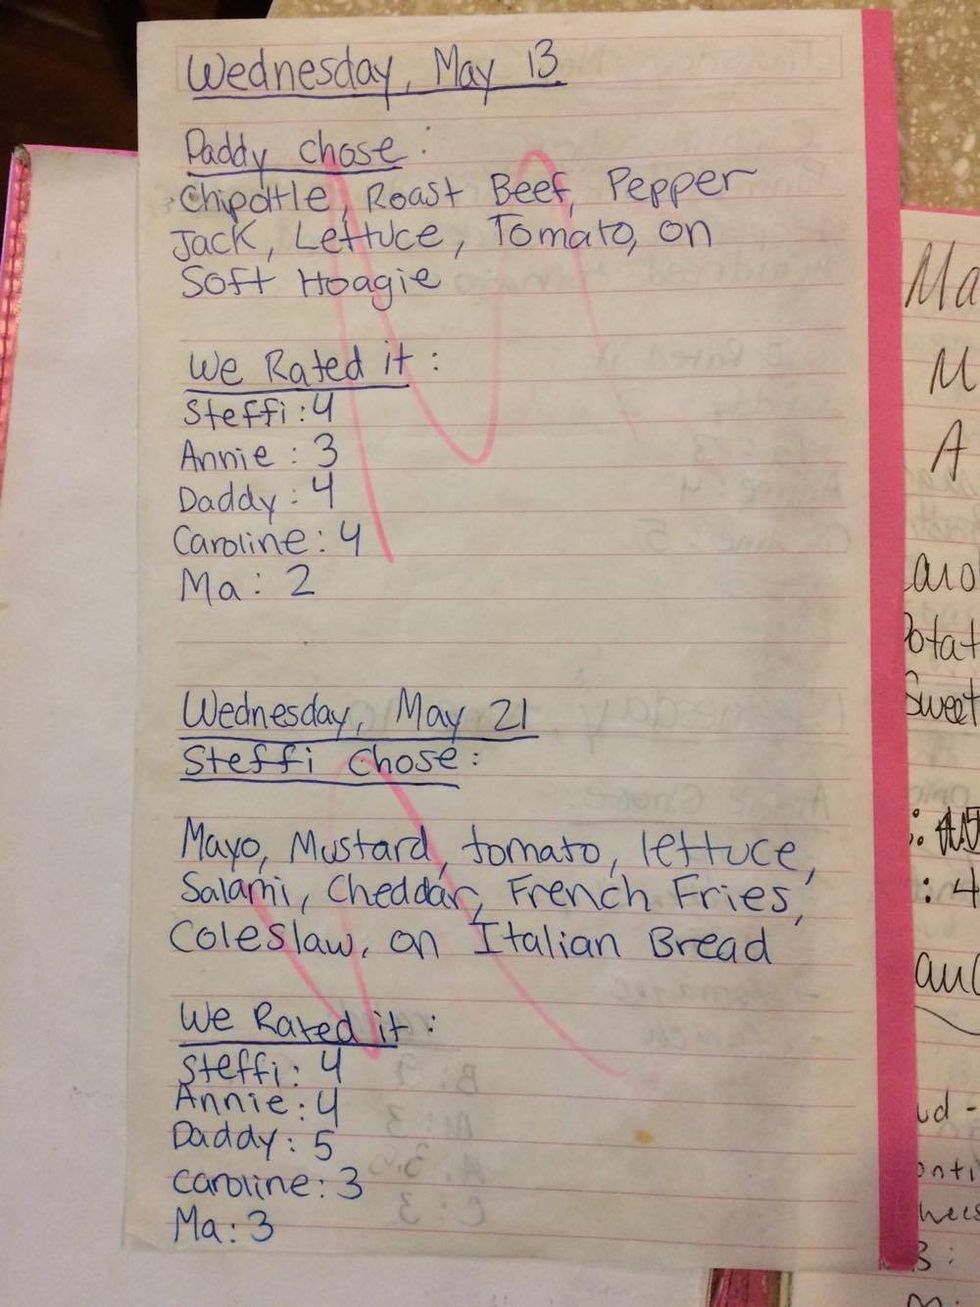 Wednesday, May 13
Daddy chose:
Chipotle, Roast Beef, Pepper
Jack, Lettuce, Tomato, on
Soft Hoagie
We Rated it:
Steffi: 4
Annie: 3
Daddy: 4
Caroline: 4
Ma: 2
Wednesday, May 21
Steffi Chose:
Mayo, Mustard, tomato, lettuce,
Salami, Cheddar, French Fries,
Coleslaw, on Italian Bread
We Rated it:
Steffi: 4
Annie: 4
Daddy: 5
Caroline: 3
Ma: 3
Ma
M
A
Sweet
: 4